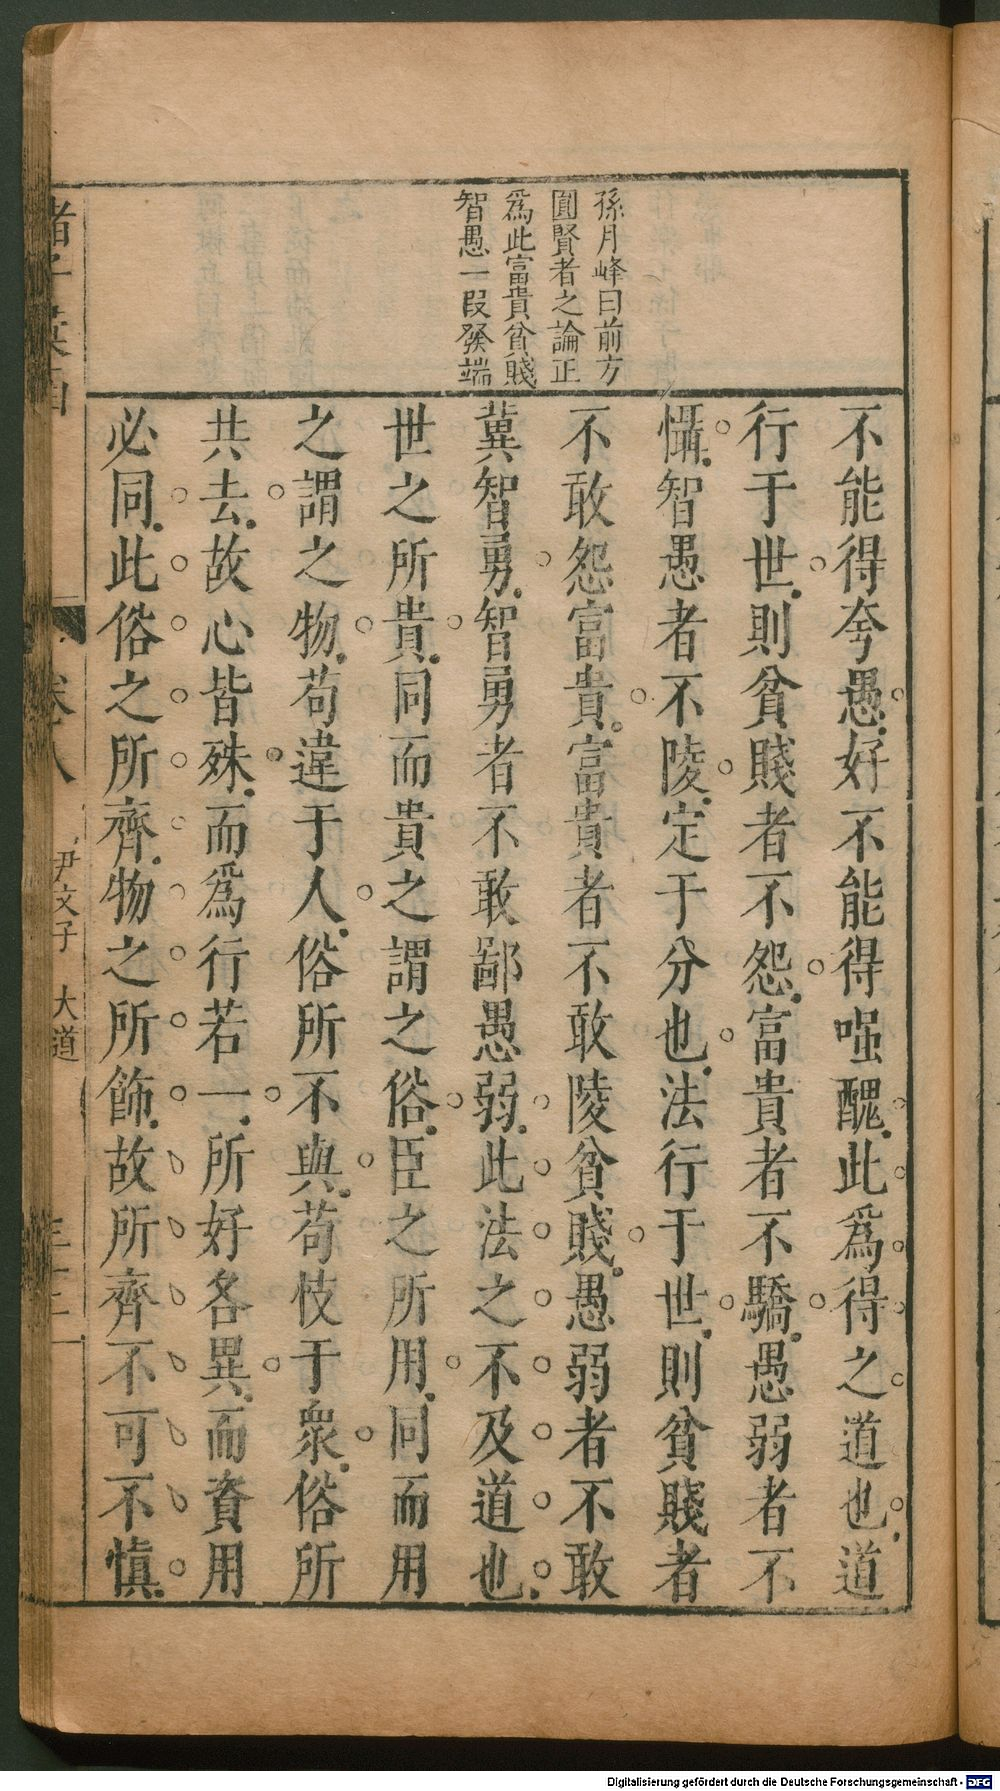 孫月峰曰前方
圓賢者之論正
爲此富貴貧賤
智愚一叚發端
不能得夸愚好不能得嗤醜此爲得之道也道
行于世則貧賤者不怨富貴者不驕愚弱者不
懾智愚者不陵定于分也法行于世則貧賤者
不敢怨富貴富貴者不敢陵貧賤愚弱者不敢
冀智勇智勇者不敢鄙愚弱此法之不及道也
世之所貴同而貴之謂之俗臣之所用同而用
之謂之物苟違于人俗所不與苟忮于衆俗所
共去故心皆殊而爲行若一所好各異而資用
必同此俗之所齊物之所飾故所齊不可不慎
尹文子 大道
Digitalisierung gefördert durch die Deutsche Forschungsgemeinschaft - DFG